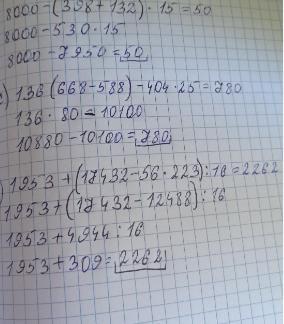 8000-(398+132)·15=50
8000-530·15
8000-7950=50
136(668-588)-404·25=780
136·80-10100
10880-10100=780
1953+(17432-56·223):16=2262
1953+(17432-12488):16
1953+4944:16
1953+309=2262